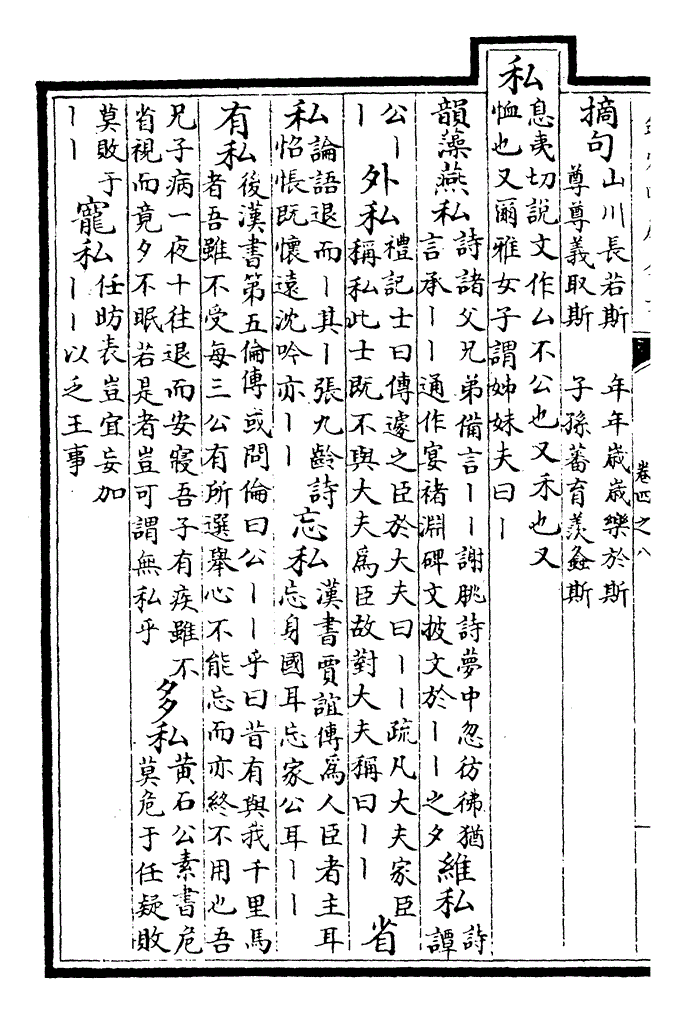 卷四之八
摘句
山川長若斯　年年歲歲樂於斯
尊尊義取斯　子孫蕃育羨螽斯
私
息夷切說文作厶不公也又禾也又
恤也又爾雅女子謂姊妹夫曰丨
韻藻
燕私
詩諸父兄弟備言丨丨謝朓詩夢中忽彷彿猶
言承丨丨通作宴褚淵碑文披文於丨丨之夕
維私
詩
譚
公丨
丨
外私
禮記士曰傳遽之臣於大夫曰丨丨疏凡大夫家臣
稱私此士既不與大夫爲臣故對大夫稱曰丨丨
省
私
論語退而丨其丨張九齡詩
怊悵既懷遠沈吟亦丨丨
忘私
漢書賈誼傳爲人臣者主耳
忘身國耳忘家公耳丨丨
有私
後漢書第五倫傳或問倫曰公丨丨乎曰昔有與我千里馬
者吾雖不受每三公有所選舉心不能忘而亦終不用也吾
兄子病一夜十往退而安寢吾子有疾雖不
省視而竟夕不眠若是者豈可謂無私乎
多私
黃石公素書危
莫危于任疑敗
莫敗于
丨丨
寵私
任昉表豈宜妄加
丨丨以乏王事